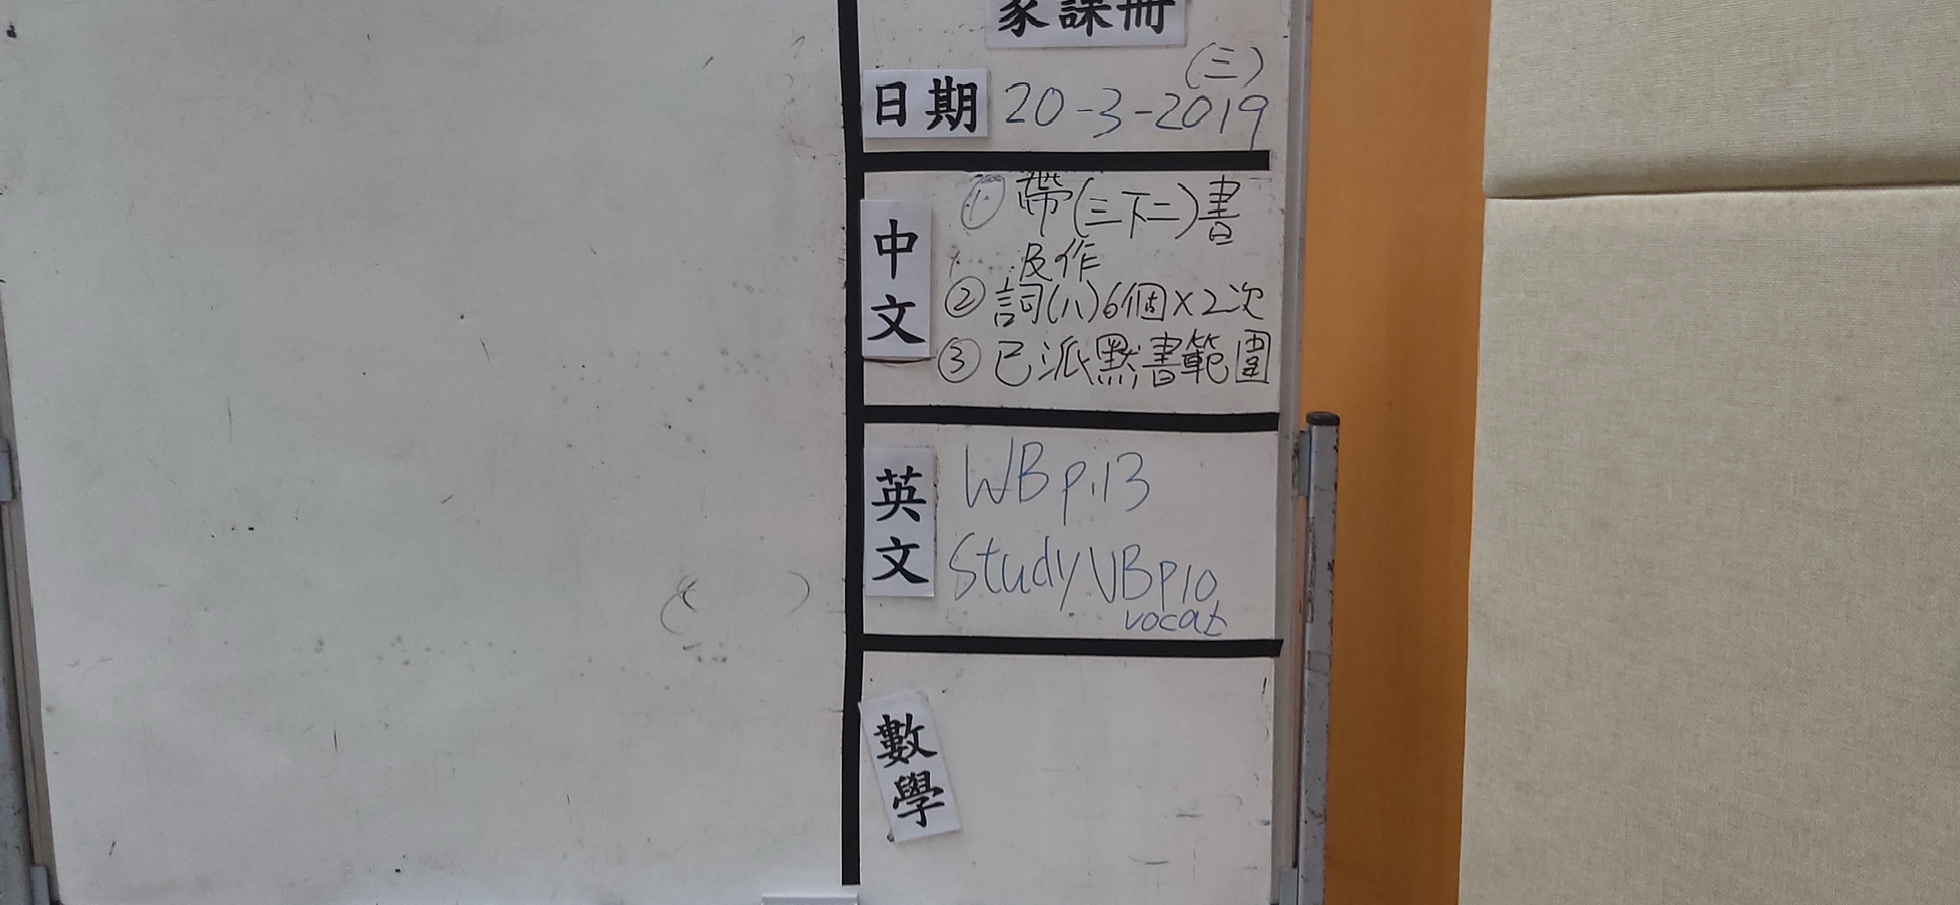 家課冊
(三)
日期 20-3-2019
中文
① 帶(三下二)書
及作
② 詞(八)6個×2次
③ 已派默書範圍
英文
WB p.13
Study VB p10
vocab
數學